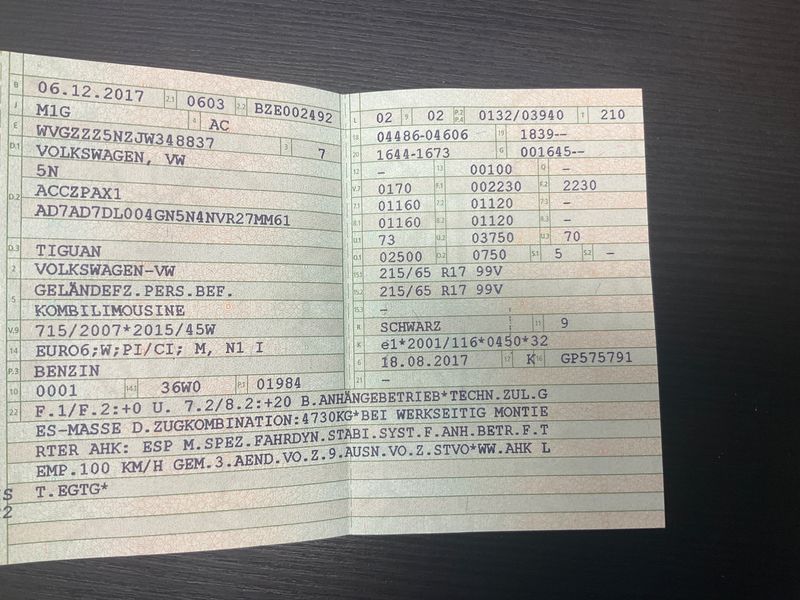 B 06.12.2017 2.1 0603 2.2 BZE002492
J M1G 4 AC
E WVGZZZ5NZJW348837 3 7
D.1 VOLKSWAGEN, VW
5N
D.2 ACCZPAX1
AD7AD7DL004GN5N4NVR27MM61
D.3 TIGUAN
2 VOLKSWAGEN-VW
5 GELÄNDEFZ.PERS.BEF.
KOMBILIMOUSINE
V.9 715/2007*2015/45W
14 EURO6;W;PI/CI; M, N1 I
P.3 BENZIN
10 0001 14.1 36W0 P.1 01984
L 02 9 02 P.2 P.4 0132/03940 T 210
18 04486-04606 19 1839--
20 1644-1673 G 001645--
12 - 13 00100 Q -
V.7 0170 F.1 002230 F.2 2230
7.1 01160 7.2 01120 7.3 -
8.1 01160 8.2 01120 8.3 -
U.1 73 U.2 03750 U.3 70
O.1 02500 O.2 0750 S.1 5 S.2 -
15.1 215/65 R17 99V
15.2 215/65 R17 99V
15.3 -
R SCHWARZ 11 9
K e1*2001/116*0450*32
6 18.08.2017 17 K 16 GP575791
21 -
22 F.1/F.2:+0 U. 7.2/8.2:+20 B.ANHÄNGEBETRIEB*TECHN.ZUL.G
ES-MASSE D.ZUGKOMBINATION:4730KG*BEI WERKSEITIG MONTIE
RTER AHK: ESP M.SPEZ.FAHRDYN.STABI.SYST.F.ANH.BETR.F.T
EMP.100 KM/H GEM.3.AEND.VO.Z.9.AUSN.VO.Z.STVO*WW.AHK L
T.EGTG*
S
2